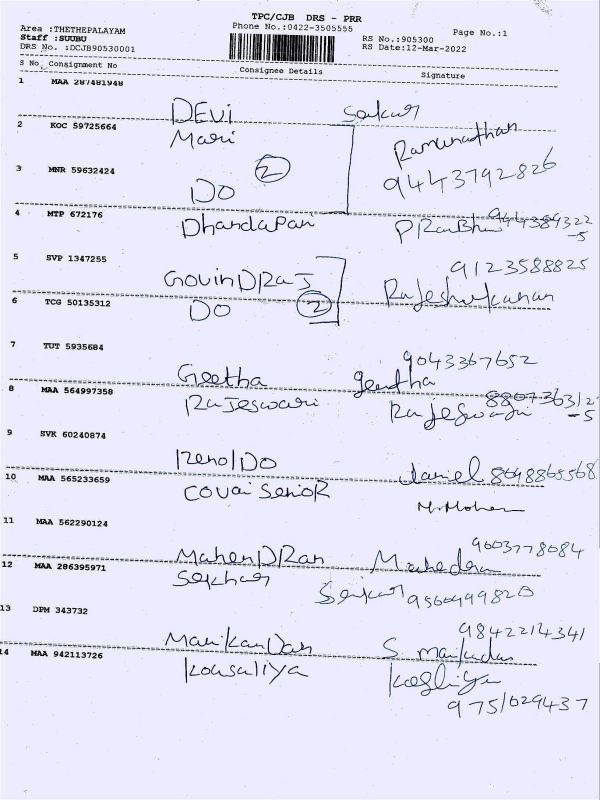 TPC/CJB DRS - PRR
Area :THETHEPALAYAM Phone No.:0422-3505555 Page No.:1
Staff :SUUBU RS No.:905300
DRS No. :DCJB90530001 RS Date:12-Mar-2022
S No Consignment No Consignee Details Signature
1 MAA 287481948
DEVi Sekar
2 KOC 59725664 Mari Ramanathan
3 MNR 59632424 2 9443792826
DO
4 MTP 672176 Dhandapani
5 SVP 1347255 9123588825
GovinDRaJ
6 TCG 50135312 DO 2
7 TUT 5935684 9043367652
Geetha geetha
8 MAA 564997358 Rajeswari
9 SVK 60240874
DO daniel
10 MAA 565233659 covai senioR M. Mohan
11 MAA 562290124 9003778084
MahenDRan
12 MAA 286395971 Sekhar
13 DPM 343732 9842214341
ManikanDan
14 MAA 942113726 kousaliya
9751029437